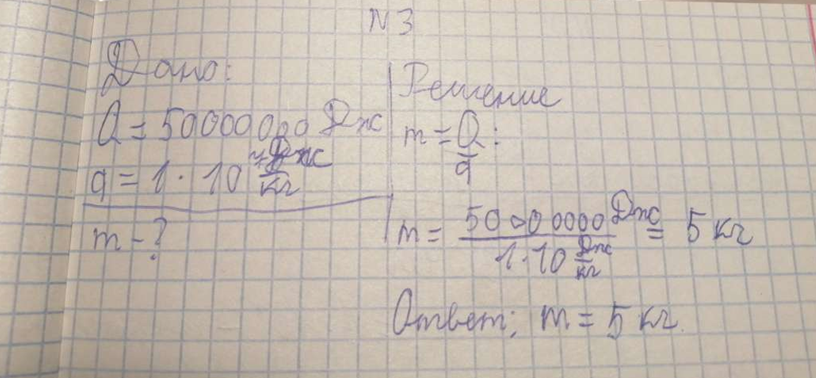 N 3
Дано:
Q = 50000000 Дж
q = 1 · 10⁷ Дж/кг
m - ?
Решение
m = Q/q :
m = 50000000 Дж / 1 · 10 Дж/кг = 5 кг
Ответ; m = 5 кг.